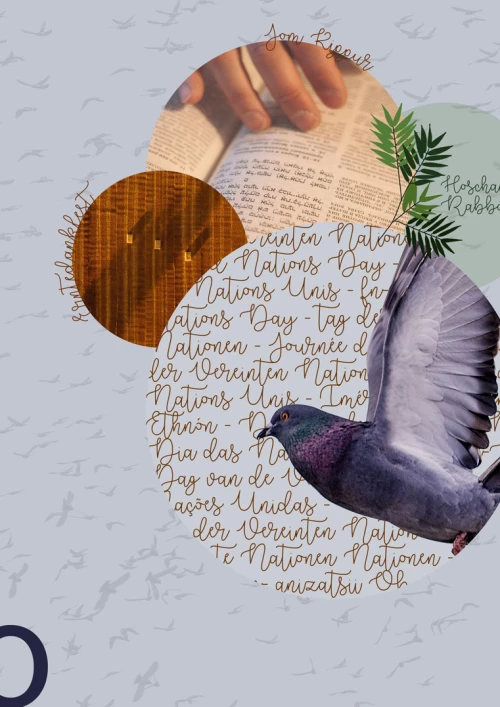 Jom Kippur
Hoscha
Rabb
Erntedankfest
reinten Nation
Nations Day -
Nations Unis - In
ations Day - tag de
ationen - Journée d
der Vereinten Nation
Nations Unis - Imé
Ethnón - D
Dia das Na
Dag van de V
ações Unidas -
der Vereinten Nation
te Nationen Nationen -
- anizatsii Ob
O